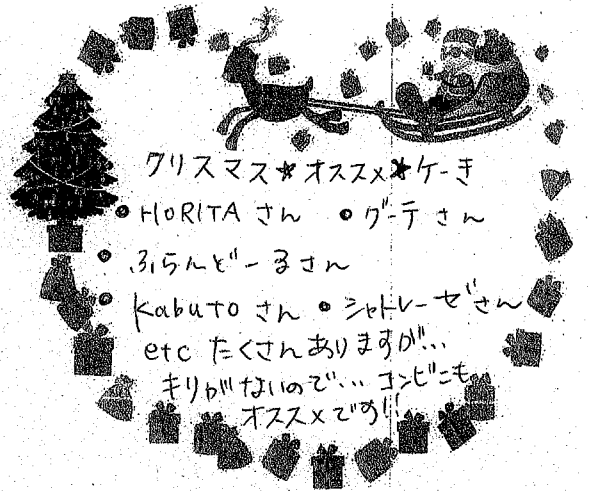 クリスマス★オススメ★ケーキ
• HORITA さん • グーテ さん
• ふらんどーるさん
• Kabuto さん • シャトレーゼさん
etc たくさんありますが…
キリがないので… コンビニも
オススメです!!